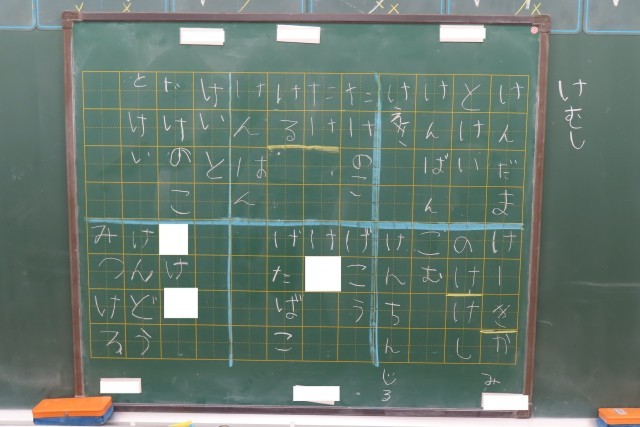 けむし
けんだま
とけい
けんばん
け
たけのこ
たけ
ける
けいと
けのこ
とけい
けーきかみ
のけけし
こむ
けんちんじる
げこう
け
げたばこ
け
けんどう
みつけろ